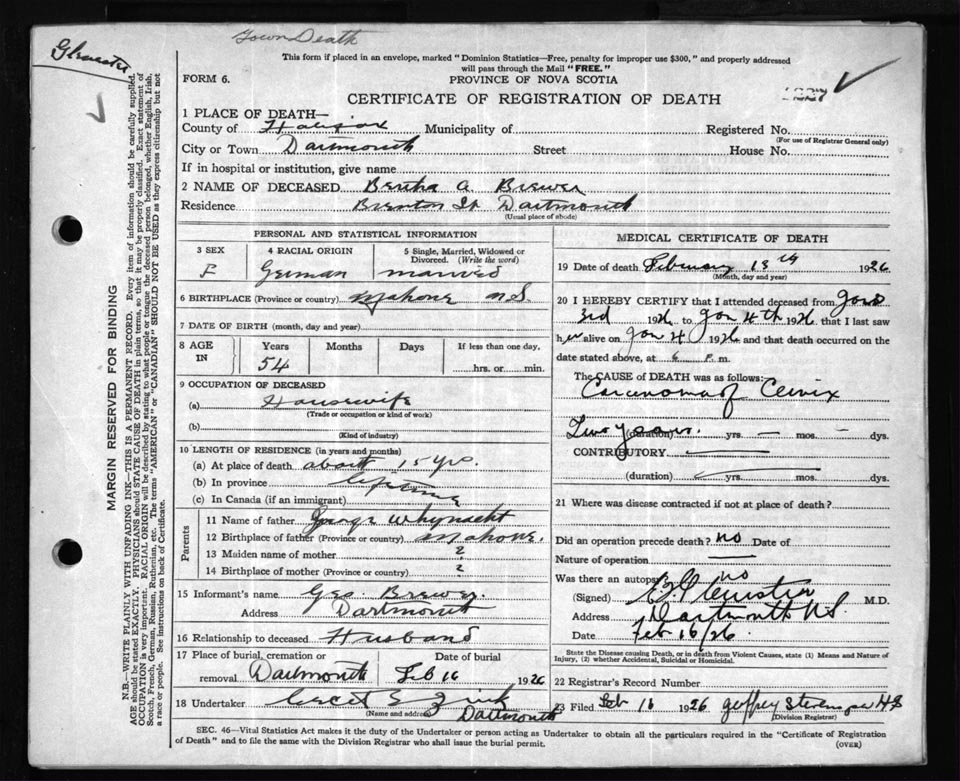 Town Death
This form if placed in an envelope, marked "Dominion Statistics—Free, penalty for improper use $300," and properly addressed
will pass through the Mail "FREE."
FORM 6.
PROVINCE OF NOVA SCOTIA
CERTIFICATE OF REGISTRATION OF DEATH
MARGIN RESERVED FOR BINDING
N.B.—WRITE PLAINLY WITH UNFADING INK—THIS IS A PERMANENT RECORD. Every item of information should be carefully supplied.
AGE should be stated EXACTLY. PHYSICIANS should STATE CAUSE OF DEATH in plain terms, so that it may be properly classified. Exact statement of
OCCUPATION is very important. RACIAL ORIGIN will be described by stating to what people or tongue the deceased person belonged, whether English, Irish,
Scotch, French, German, Russian, Ruthenian, etc. The terms "AMERICAN" or "CANADIAN" SHOULD NOT BE USED as they express citizenship but not
a race or people. See instructions on back of Certificate.
1 PLACE OF DEATH—
County of Halifax Municipality of Registered No.
(For use of Registrar General only)
City or Town Dartmouth Street House No.
If in hospital or institution, give name
2 NAME OF DECEASED Bertha A. Brewer
Residence Brenton St Dartmouth
(Usual place of abode)
PERSONAL AND STATISTICAL INFORMATION
3 SEX 4 RACIAL ORIGIN 5 Single, Married, Widowed or
Divorced. (Write the word)
F German married
6 BIRTHPLACE (Province or country) Mahone N.S.
7 DATE OF BIRTH (month, day and year)
8 AGE IN Years Months Days If less than one day,
54 hrs. or min.
9 OCCUPATION OF DECEASED
(a) Housewife
(Trade or occupation or kind of work)
(b)
(Kind of industry)
10 LENGTH OF RESIDENCE (in years and months)
(a) At place of death about 15 yrs.
(b) In province lifetime
(c) In Canada (if an immigrant)
Parents
11 Name of father George Whynacht
12 Birthplace of father (Province or country) Mahone.
13 Maiden name of mother ?
14 Birthplace of mother (Province or country) ?
15 Informant's name Geo Brewer.
Address Dartmouth
16 Relationship to deceased Husband
17 Place of burial, cremation or Date of burial
removal Dartmouth Feb 16 1926
18 Undertaker Zink
(Name and address) Dartmouth
MEDICAL CERTIFICATE OF DEATH
19 Date of death February 13th 1926
(Month, day and year)
20 I HEREBY CERTIFY that I attended deceased from Jan
3rd 1926 to Jan 4th 1926 that I last saw
her alive on Jan 4 1926 and that death occurred on the
date stated above, at 6 P.m.
The CAUSE OF DEATH was as follows:
Carcinoma of Cervix
Two years. (duration) yrs. — mos. — dys.
CONTRIBUTORY
(duration) yrs. mos. dys.
21 Where was disease contracted if not at place of death?
Did an operation precede death? no Date of
Nature of operation —
Was there an autopsy no
(Signed) M.D.
Address Dartmouth N.S.
Date Feb 16/26.
State the Disease causing Death, or in death from Violent Causes, state (1) Means and Nature of
Injury, (2) whether Accidental, Suicidal or Homicidal.
22 Registrar's Record Number
23 Filed Feb 16 1926 Geoffrey Stevens
(Division Registrar)
SEC. 46—Vital Statistics Act makes it the duty of the Undertaker or person acting as Undertaker to obtain all the particulars required in the "Certificate of Registration
of Death" and to file the same with the Division Registrar who shall issue the burial permit.
(OVER)